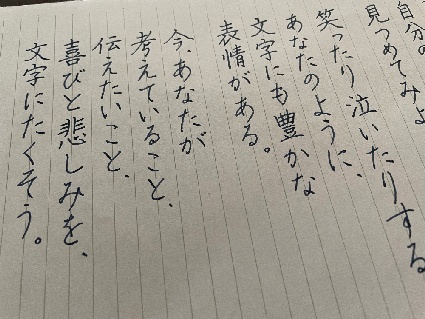 自分の
見つめてみよ
笑ったり泣いたりする
あなたのように、
文字にも豊かな
表情がある。
今、あなたが
考えていること、
伝えたいこと、
喜びと悲しみを、
文字にたくそう。